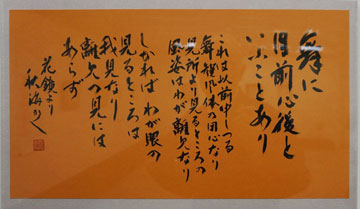 舞に
目前心後と
いふことあり
これは以前申しつる
舞後風体の用心なり
見所より見るところの
風姿はわが離見なり
しかればわが眼の
見るところは
我見なり
離見の見には
あらず
花鏡より
秋海かく